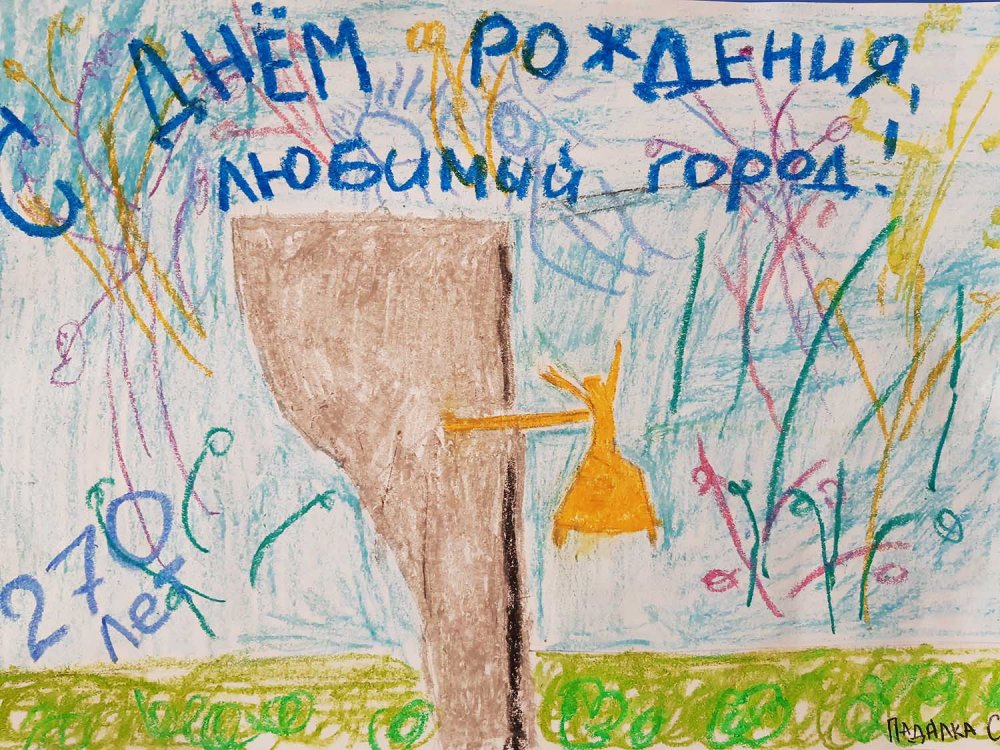 С ДНЁМ РОЖДЕНИЯ,
ЛЮБИМЫЙ ГОРОД!
270
лет
ПАДАЛКА С